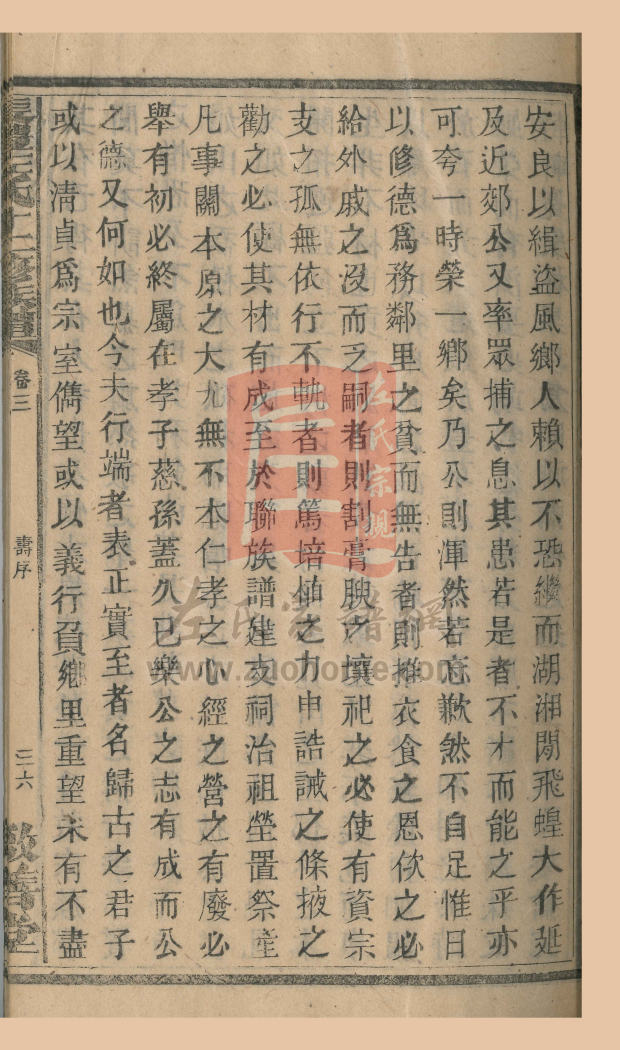 安良以緝盜風鄉人賴以不恐繼而湖湘閒飛蝗大作延
及近郊公又率眾捕之息其患若是者不才而能之乎亦
可夸一時榮一鄉矣乃公則渾然若忘歉然不自足惟日
以修德爲務鄰里之貧而無告者則推衣食之恩佽之必
給外戚之沒而乏嗣者則割膏腴之壤祀之必使有資宗
支之孤無依行不軌者則篤培植之力申誥誡之條掖之
勸之必使其材有成至於聯族譜建支祠治祖塋置祭產
凡事關本原之大尤無不本仁孝之心經之營之有廢必
舉有初必終屬在孝子慈孫蓋久已樂公之志有成而公
之德又何如也今夫行端者表正實至者名歸古之君子
或以清貞爲宗室儁望或以義行負鄉里重望未有不盡
卷三
壽序
三六
敦善堂
左氏宗親
www.zuohome.com